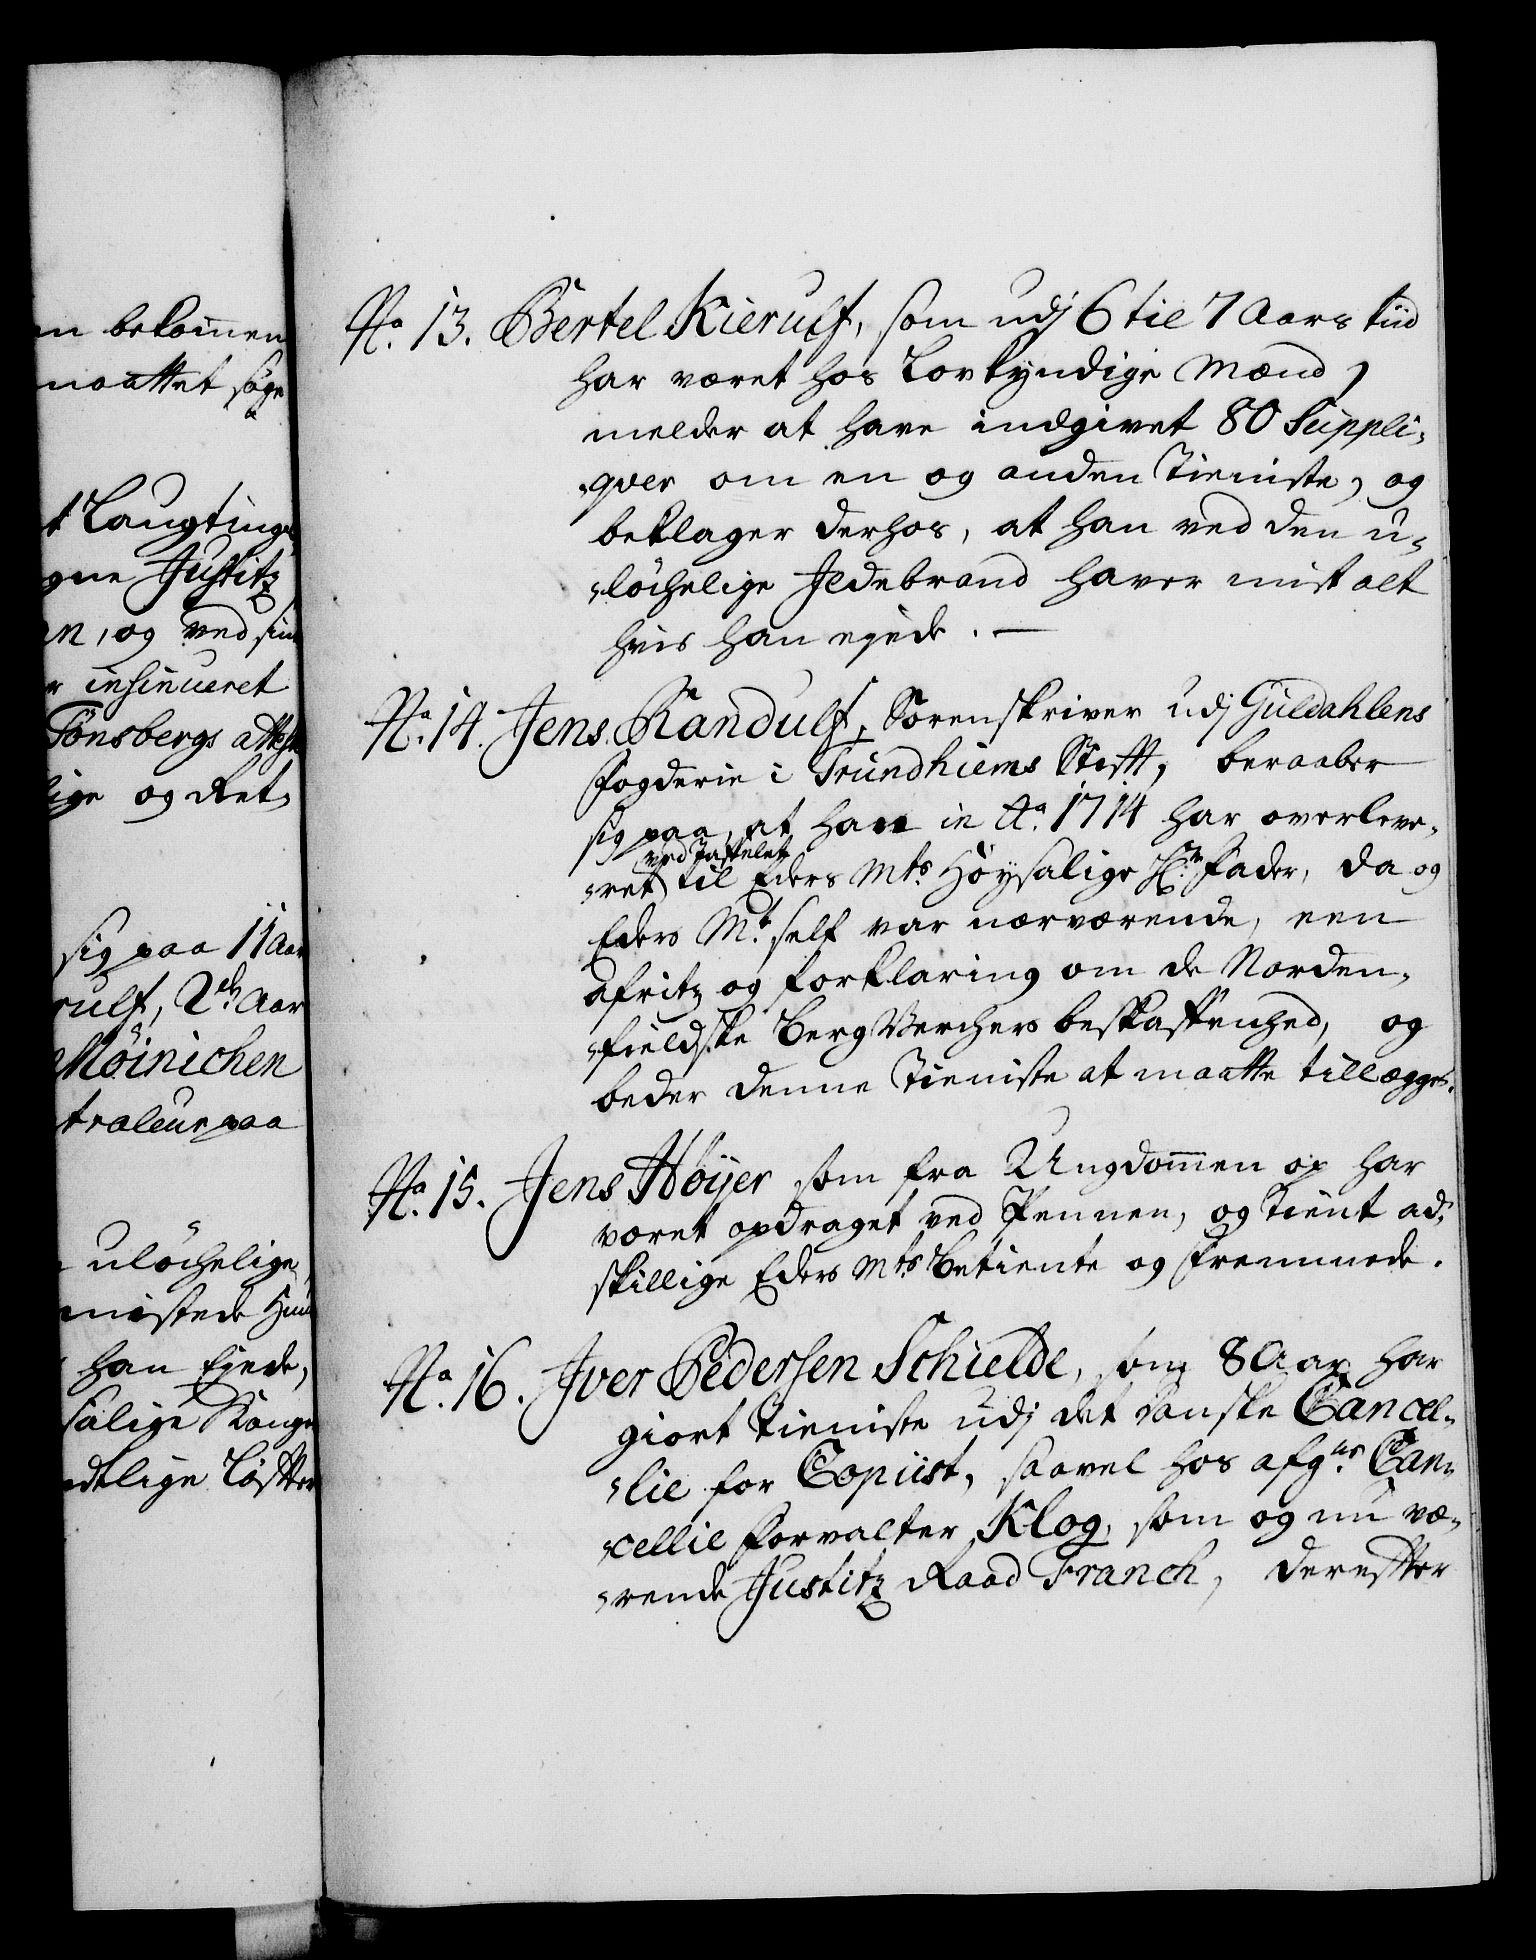 n bekom̅en
maattet söge
t Laugtings
gne Justitz
n, og ved sin
r insinueret
Tönsbergs attest
lige og Ret,
sig paa 11 Aar
rulf, 2de Aar
Möinichen
traleur paa
ulöchelige
mistede
han Ejede,
salige Konge
dtlige Löffter
No. 13. Bertel Kierulf, som udj 6 til 7 Aars tiid
har været hos Lovkyndige Mænd,
melder at have indgivet 80 Suppli-
qver om en og anden Tieniste, og
beklager derhos, at han ved den u-
löchelige Jldebrand haver mist alt
hvis han ejede. —
No. 14. Jens Randulf, Sorenskriver udj Guldahlens
Fogderie i Trundhiems Stifft, beraaber
sig paa, at han in Ao. 1714 har overleve-
ved Taffelet
ret til Eders Mts. Höysalige Hr. Fader, da og
Eders Mt. self var nærværende, een
Afritz og forklaring om de Norden-
fieldske BergVerchers beskaffenhed, og
beder denne Tieniste at maatte tillægges.
No. 15. Jens Höijer som fra Ungdom̅en op har
været opdraget ved Pennen, og tient ad-
skillige Eders Mts. Betiente og Fremmede.
No. 16. Jver Pedersen Schielde, som 8 Aar har
giort Tieniste udj det danske Cancel-
lie for Copiist, saavel hos afgne. Can-
cellie Forvalter Klog, som og nu væ-
rende Justitz Raad Franch, dereffter